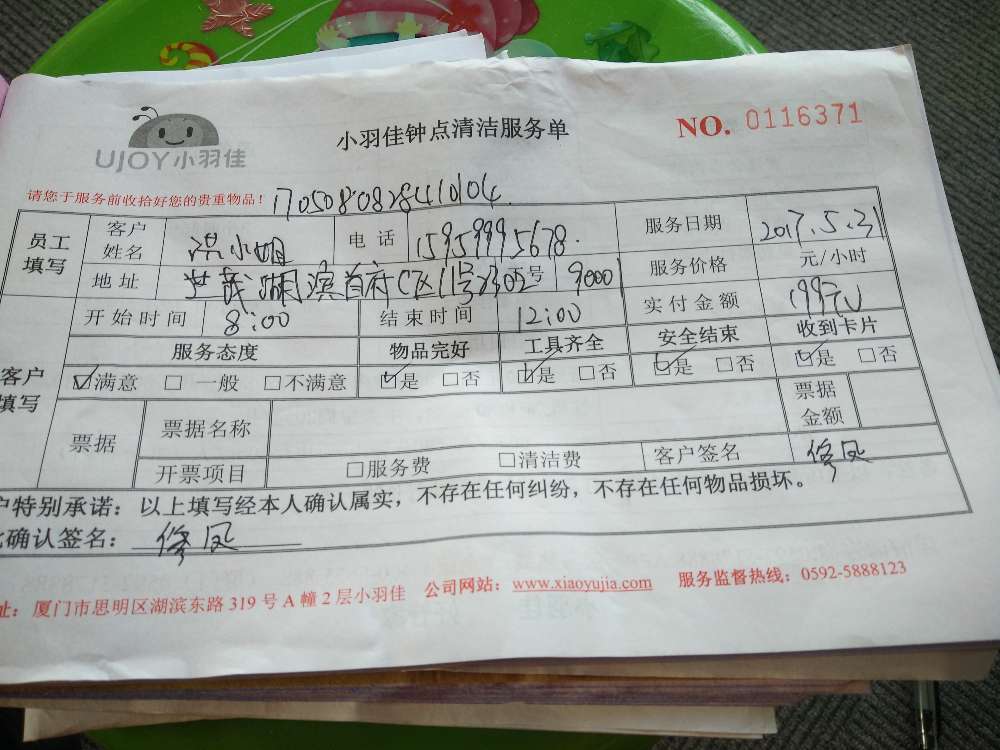 UJOY小羽佳
小羽佳钟点清洁服务单
NO. 0116371
请您于服务前收拾好您的贵重物品！
员工填写 客户姓名 洪小姐 电话 15959995678 服务日期 2017.5.31
地址 世茂湖滨首府C区 号 9000 服务价格 元/小时
开始时间 8:00 结束时间 12:00 实付金额 199元
客户填写 服务态度 物品完好 工具齐全 安全结束 收到卡片
☑满意 □一般 □不满意 ☑是 □否 ☑是 □否 ☑是 □否 ☑是 □否
票据 票据名称 票据金额
开票项目 □服务费 □清洁费 客户签名
户特别承诺：以上填写经本人确认属实，不存在任何纠纷，不存在任何物品损坏。
确认签名：
址：厦门市思明区湖滨东路319号A幢2层小羽佳 公司网站：www.xiaoyujia.com 服务监督热线：0592-5888123